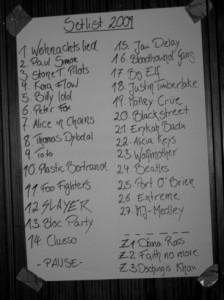 Setlist 2009
1 Weihnachtslied
2 Paul Simon
3 Stone T. Pilots
4 Kora Flow
5 Billy Idol
6 Peter Fox
7 Alice in Chains
8 Thomas Dybdal
9 Toto
10. Plastic Bertrand
11 Foo Fighters
12 SLAYER
13. Bloc Party
14. Clueso
-PAUSE-
15. Jan Delay
16 Bloodhound Gang
17 Big Elf
18 Justin Timberlake
19 Mötley Crüe
20 Blackstreet
21. Erykah Badu
22. Alicia Keys
23 Wolfmother
24 Beatles
25. Port O'Brien
26 Extreme
27 MJ-Medley
Z1 Diana Ross
Z2 Faith no more
Z3 Dschingis Khan